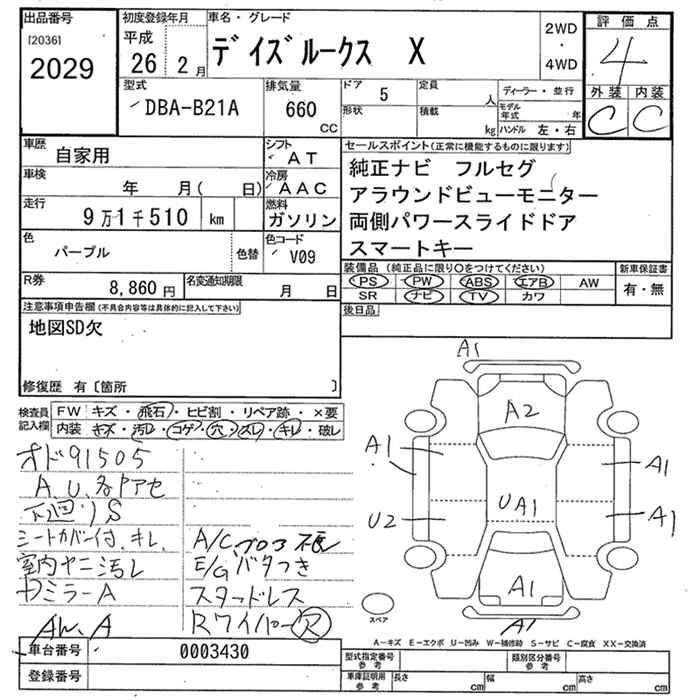 出品番号
[2036]
2029
初度登録年月
平成
26 2月
車名・グレード
デイズルークス X
2WD
・
4WD
評価点
4
外装 内装
C C
型式
DBA-B21A
排気量
660
CC
ドア 5
形状
定員
人
積載
kg
ディーラー・並行
モデル年式 年
ハンドル 左・右
車歴
自家用
シフト
AT
車検
年 月( 日)
冷房
AAC
走行
9万1千510 km
燃料
ガソリン
色
パープル
色替
色コード
V09
R券
8,860円
名変通知期限
月 日
セールスポイント(正常に機能するものに限ります)
純正ナビ フルセグ
アラウンドビューモニター
両側パワースライドドア
スマートキー
装備品 (純正品に限り○をつけてください)
PS PW ABS エアB AW
SR ナビ TV カワ
新車保証書
有・無
後日品
注意事項申告欄(不具合内容等は具体的に記入して下さい)
地図SD欠
修復歴 有〔箇所 〕
検査員
記入欄
FW キズ・飛石・ヒビ割・リペア跡・×要
内装 キズ・汚レ・コゲ・穴・スレ・キレ・破レ
オド91505
A、U、各アセ
下廻りS
シートカバー付、キレ、
室内ヤニ汚レ
ドミラーA
A/C、ブロア不良
E/Gバタつき
スタッドレス
Rワイパー欠
A1
A2
A1
A1
UA1
U2
A1
A1
A1
スペア
A-キズ E-エクボ U-凹み W-補修跡 S-サビ C-腐食 XX-交換済
車台番号
0003430
登録番号
型式指定番号
参考
類別区分番号
参考
車庫証明用
参考
長さ cm
幅 cm
高さ cm